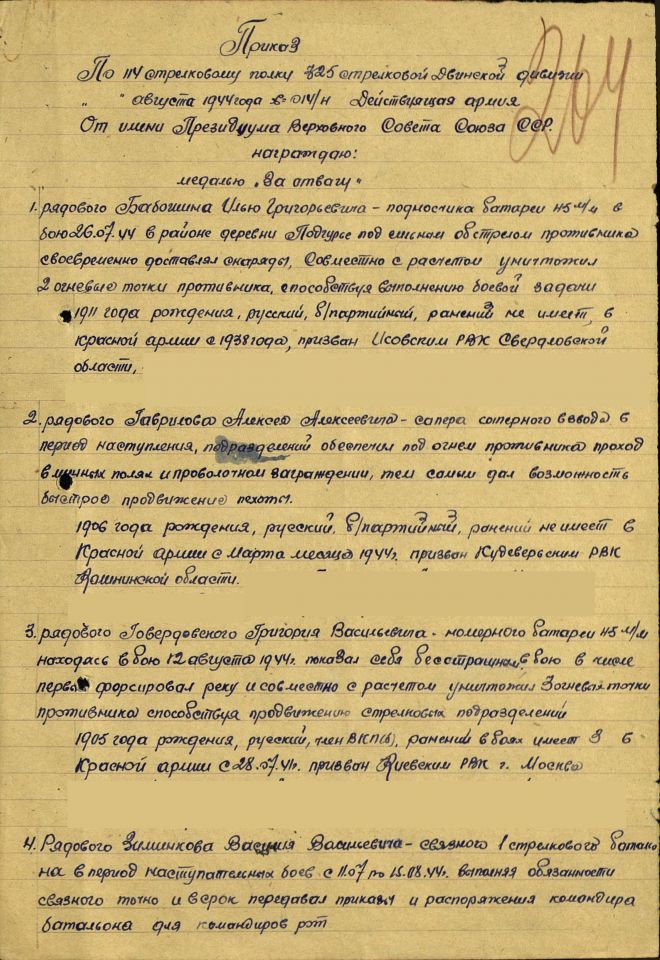 Приказ
264
По 114 стрелковому полку 325 стрелковой Двинской дивизии
" " августа 1944 года № 014/н Действующая армия
От имени Президиума Верховного Совета Союза ССР.
награждаю:
медалью „За отвагу"
1. рядового Бабошина Илью Григорьевича - подносчика батареи 45 м/м в
бою 26.07.44 в районе деревни Подгурье под сильным обстрелом противника
своевременно доставлял снаряды, Совместно с расчетом уничтожил
2 огневые точки противника, способствуя выполнению боевой задачи
1911 года рождения, русский, б/партийный, ранений не имеет, в
красной армии с 1938 года, призван Исовским РВК Свердловской
области.
2. рядового Гаврилова Алексея Алексеевича - сапера саперного взвода в
период наступления, подразделений обеспечил под огнем противника проход
в минных полях и проволочном заграждении, тем самым дал возможность
быстрое продвижение пехоты.
1906 года рождения, русский, б/партийный, ранений не имеет в
Красной армии с Марта месяца 1944г. призван Кудеверьским РВК
Калининской области.
3. рядового Говердовского Григория Васильевича - номерного батареи 45 м/м
находясь в бою 12 августа 1944г. показал себя бесстрашным, в бою в числе
первых форсировал реку и совместно с расчетом уничтожил 3 огневых точки
противника способствуя продвижению стрелковых подразделений
1905 года рождения, русский, член ВКП(б), ранений в боях имеет 3 в
Красной армии с 28.07.41г. призван Киевским РВК г. Москва
4. Рядового Зиминкова Василия Васильевича - связного 1 стрелкового батальо
на в период наступательных боев с 11.07 по 15.08.44г. выполняя обязанности
связного точно и в срок передавал приказы и распоряжения командира
батальона для командиров рот